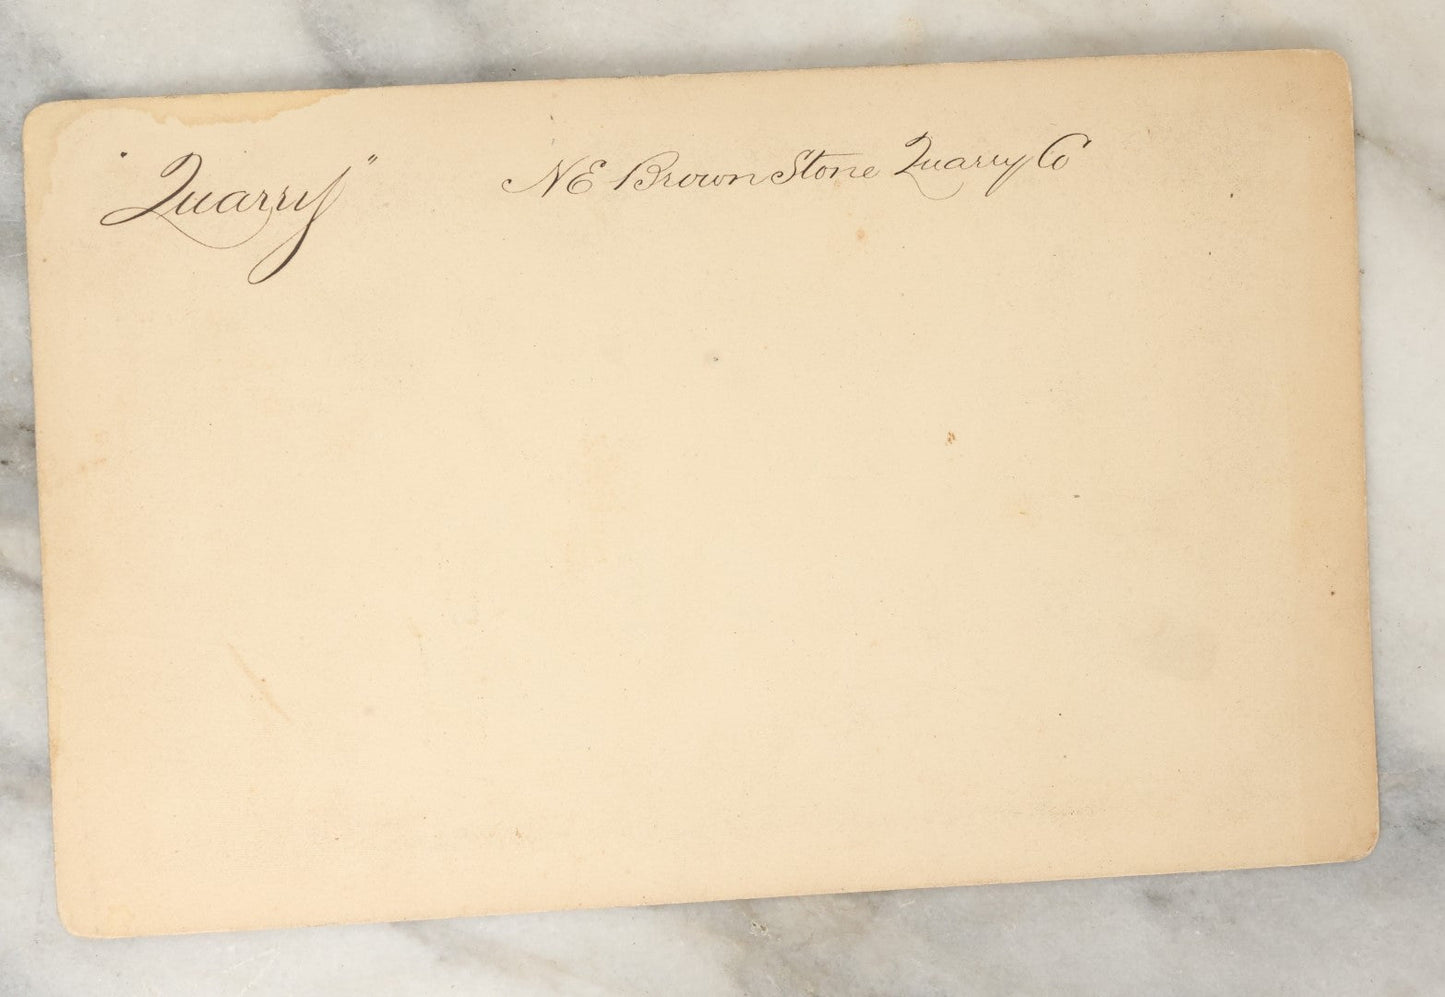 "Quarry"
NE Brown Stone Quarry Co